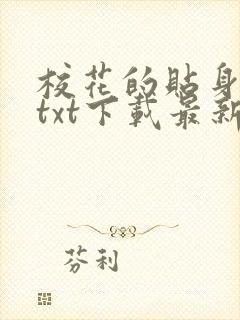 校花的貼身
txt下載最新
芬利